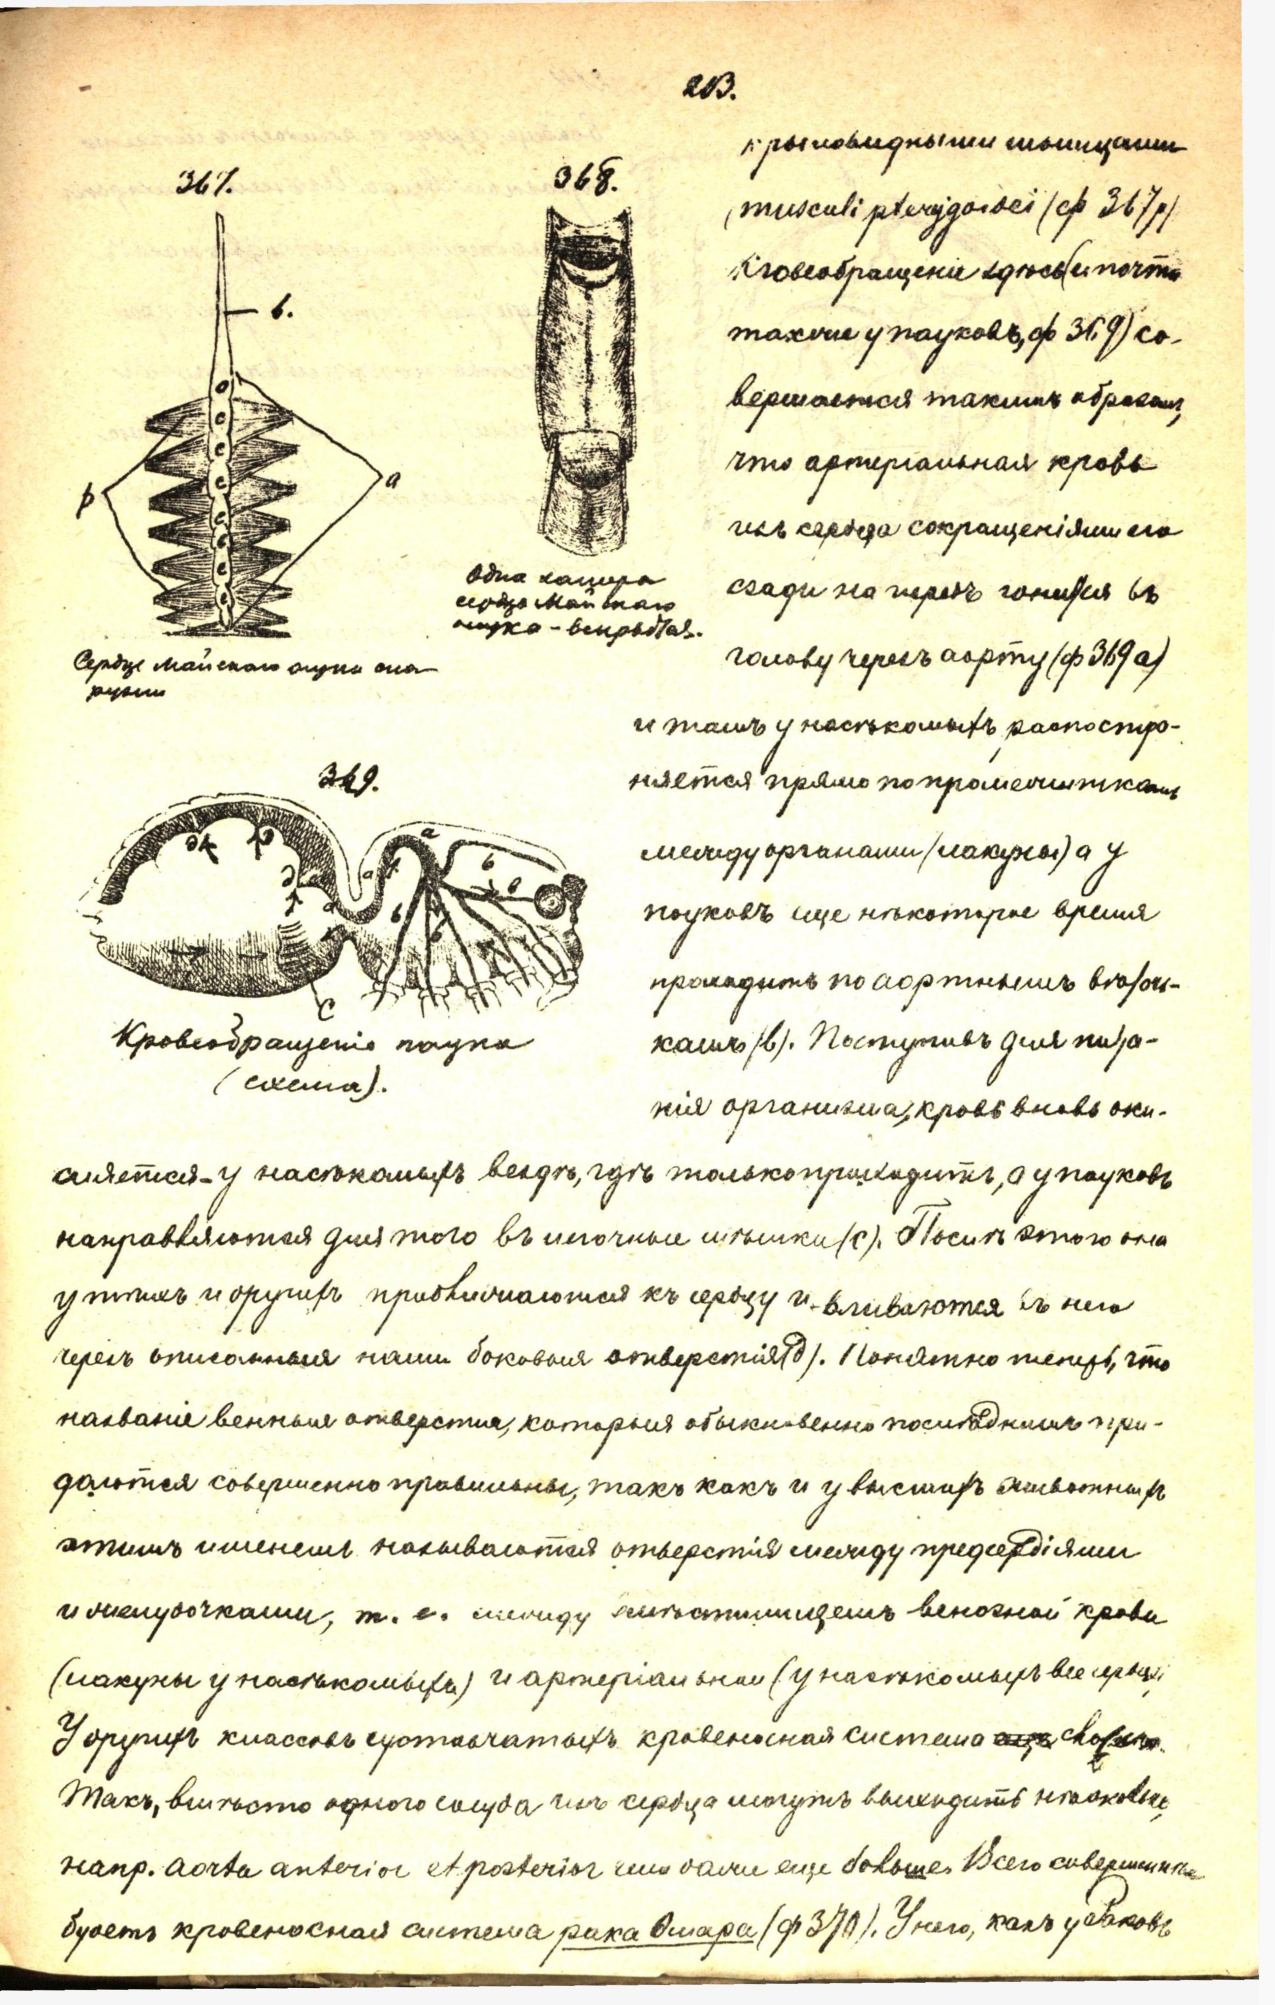 213.
крыловидными мышцами
(musculi pterygoidei (ф 367p)
Кровеобращеніе здѣсь (и почти
также у пауковъ, ф 369) со-
вершается такимъ образомъ,
что артеріальная кровь
изъ сердца сокращеніями его
сзади на передъ гонится въ
голову черезъ аорту (ф 369 а)
и тамъ у насѣкомыхъ распостро-
няется прямо по промежуткамъ
между органами (лакуны) а у
пауковъ еще нѣкоторое время
проходитъ по аортнымъ вѣточ-
камъ (в). Поступивъ для пита-
нія организма, кровь вновь оки-
сляется - у насѣкомыхъ вездѣ, гдѣ только проходитъ, а у пауковъ
направляются для того въ легочные мѣшки (с). Послѣ этого она
у тѣхъ и другихъ приближаются къ сердцу и вливаются въ него
черезъ описанныя нами боковыя отверстія (д). Понятно теперь, что
названіе венныя отверстія, которыя обыкновенно послѣднимъ при-
даются совершенно правильны, такъ какъ и у высшихъ животныхъ
этимъ именемъ называются отверстія между предсердіями
и желудочками, т. е. между вмѣстилищемъ венозной крови
(лакуны у насѣкомыхъ) и артеріальной (у насѣкомыхъ все сердце)
У другихъ классовъ суставчатыхъ кровеносная система
Такъ, вмѣсто одного сосуда изъ сердца могутъ выходить нѣсколько,
напр. aorta anterior et posterior или даже еще больше. Всего совершеннѣе
будетъ кровеносная система рака Омара (ф 370). У него, какъ у раковъ
367.
в.
р
а
Сердце майскаго жука сна-
ружи
368.
Одна камера
сердца майскаго
жука - вскрытая.
369.
д
д
д
а
а
а
в
в
в
в
с
Кровеобращеніе паука
(схема).